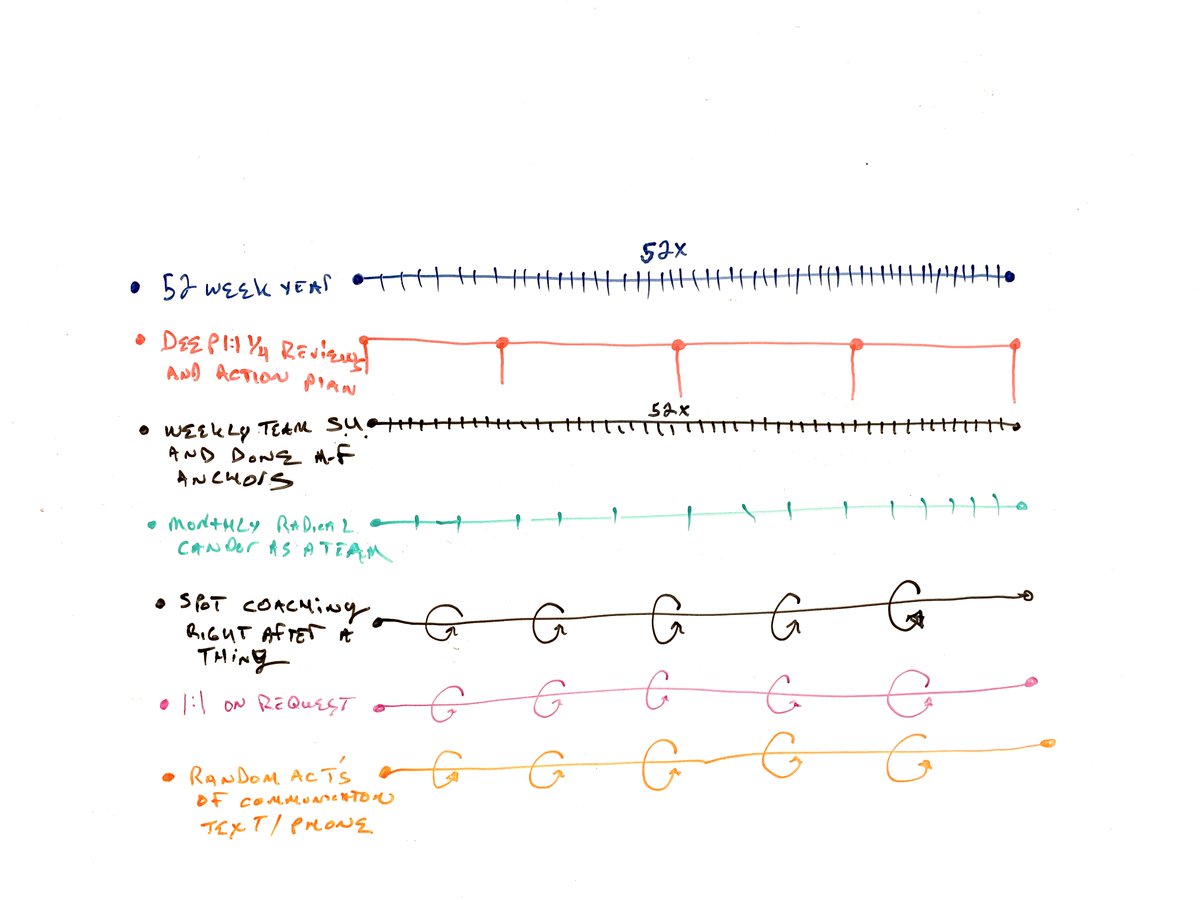 52x
• 52 WEEK YEAR
• DEEP 1:1 1/4 REVIEWS
AND ACTION PLAN
52x
• WEEKLY TEAM S.U.
AND DONE M-F
ANCHORS
• MONTHLY RADICAL
CANDOR AS A TEAM
• SPOT COACHING
RIGHT AFTER A
THING
• 1:1 ON REQUEST
• RANDOM ACT'S
OF COMMUNICATION
TEXT / PHONE